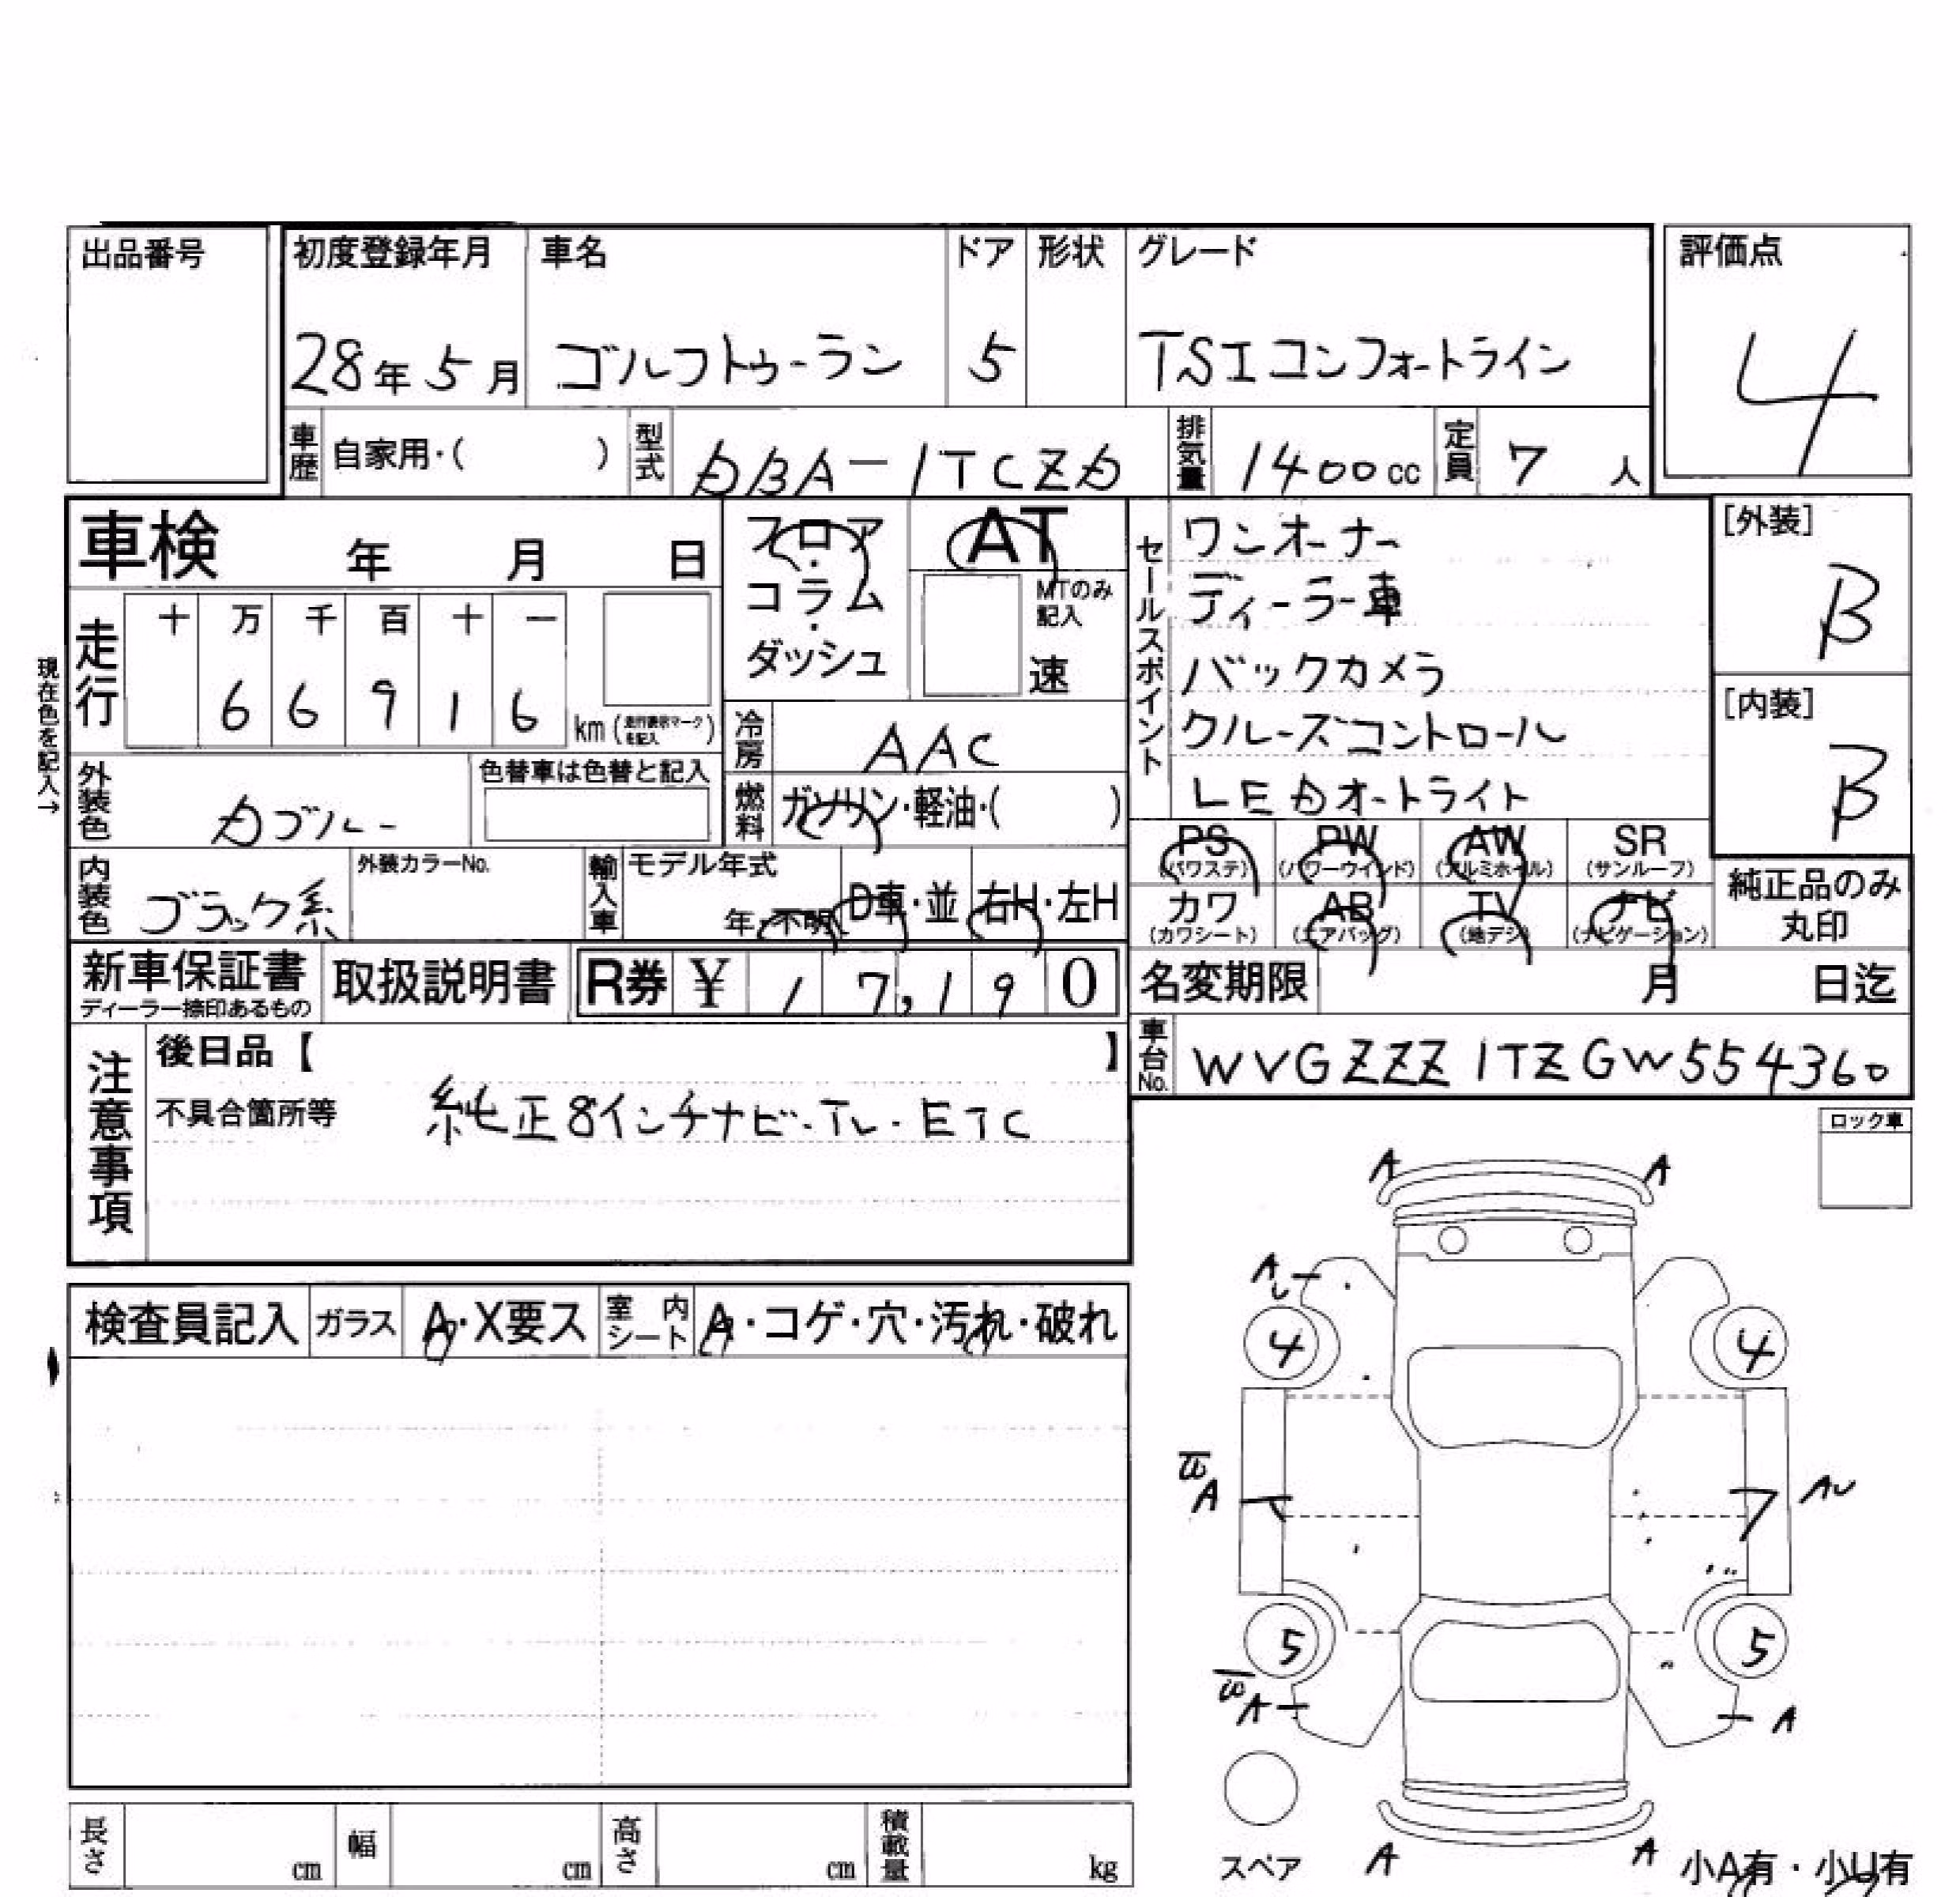 出品番号
初度登録年月 車名 ドア 形状 グレード 評価点
28年5月 ゴルフトゥーラン 5 TSIコンフォートライン 4
車歴 自家用・( ) 型式 DBA-1TCZD 排気量 1400cc 定員 7人
車検 年 月 日
フロア・コラム・ダッシュ
AT
MTのみ記入
速
セールスポイント
ワンオーナー
ディーラー車
バックカメラ
クルーズコントロール
LEDオートライト
[外装]
B
[内装]
B
現在色を記入→
走行 十 万 千 百 十 一
6 6 9 1 6 km (走行表示マークを記入)
冷房 AAC
外装色 Dブルー 色替車は色替と記入
燃料 ガソリン・軽油・( )
PS (パワステ) PW (パワーウインド) AW (アルミホイル) SR (サンルーフ)
カワ (カワシート) AB (エアバッグ) TV (地デジ) ナビ (ナビゲーション)
純正品のみ丸印
内装色 ブラック系 外装カラーNo. 輸入車 モデル年式 年・不明 D車・並 右H・左H
新車保証書 ディーラー捺印あるもの 取扱説明書 R券 ¥ 17,190
名変期限 月 日迄
車台No. WVGZZZ1TZGW554360
注意事項
後日品【 】
不具合箇所等 純正8インチナビ・TV・ETC
ロック車
検査員記入 ガラス A・X要ス 室内シート A・コゲ・穴・汚れ・破れ
A A
A
4 4
A AU
5 5
A A
スペア
A A
小A有・小U有
長さ cm 幅 cm 高さ cm 積載量 kg